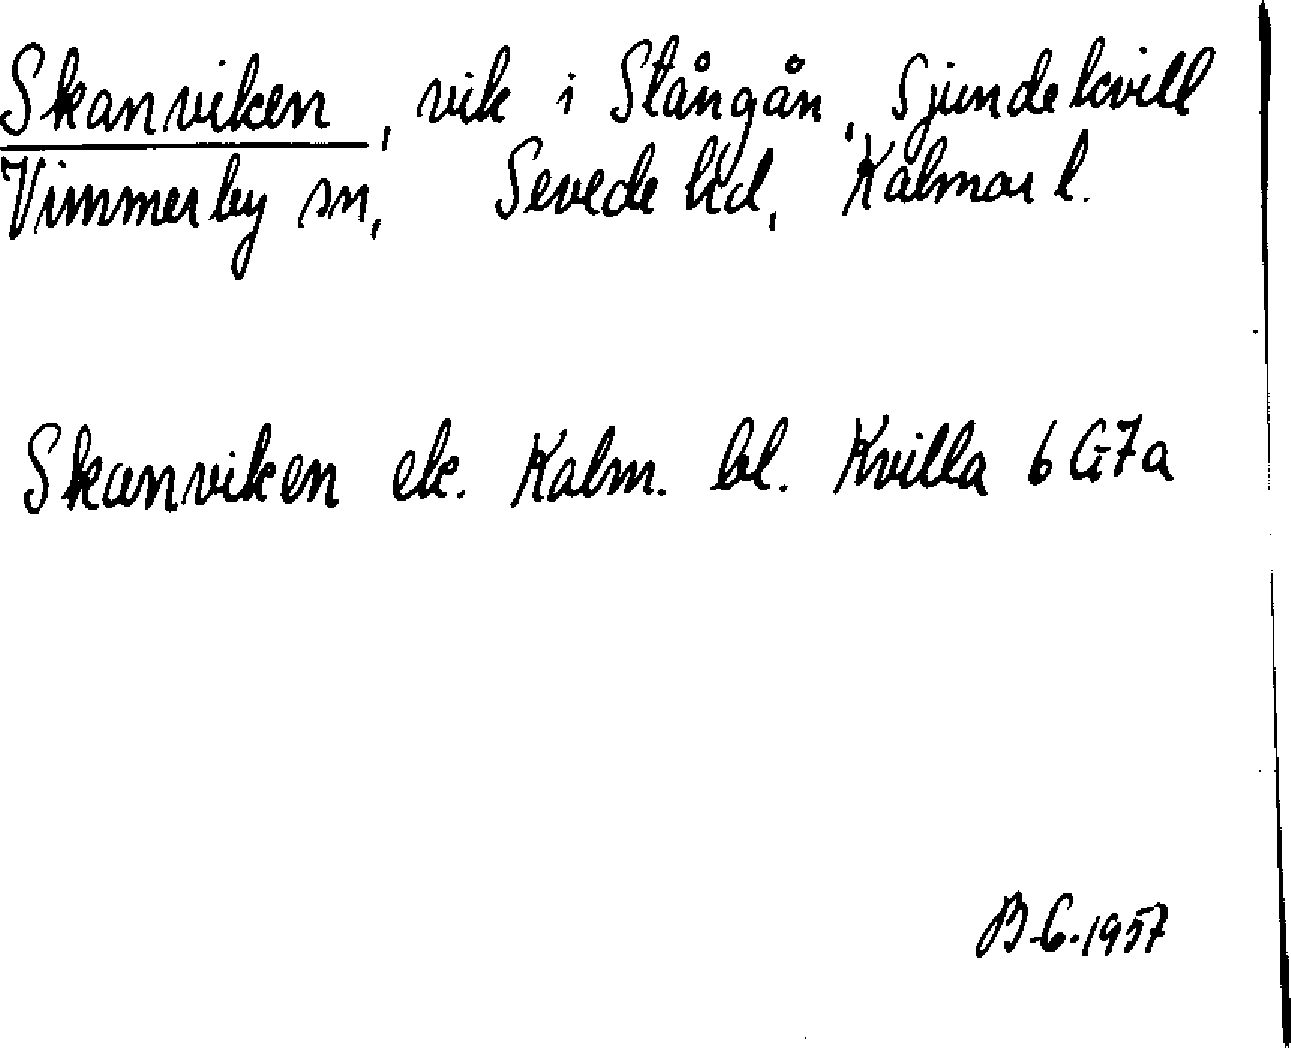 Skanviken, vik i Stångån, Sjundekvill
Vimmerby sn, Sevede hd, Kalmar l.
Skanviken ek. Kalm. bl. Kvilla 6 G 7a
B-G. 1957